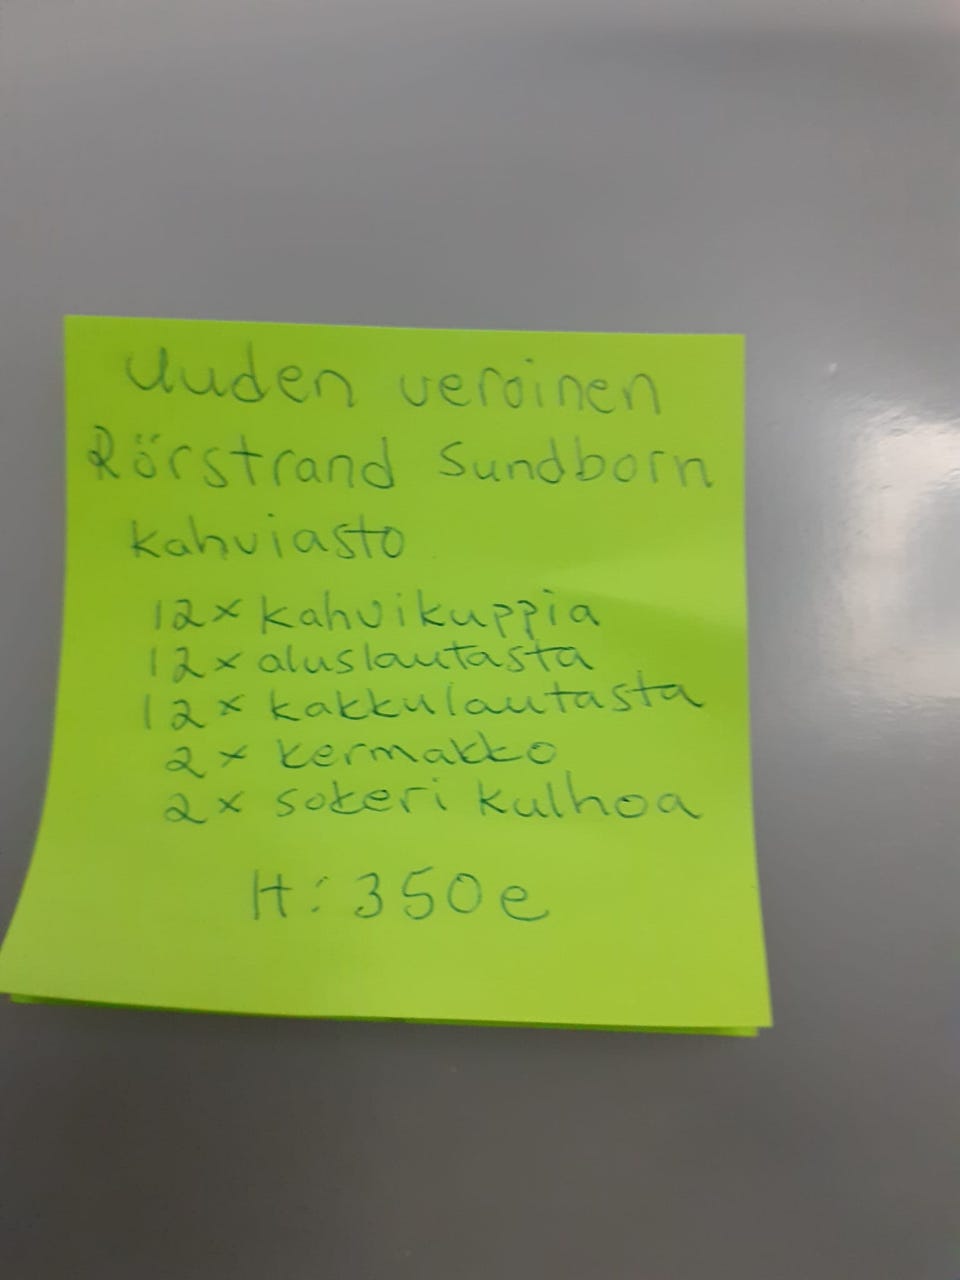 Uuden veroinen
Rörstrand Sundborn
kahviasto
12x kahvikuppia
12x aluslautasta
12x kakkulautasta
2x kermakko
2x sokeri kulhoa
H: 350e